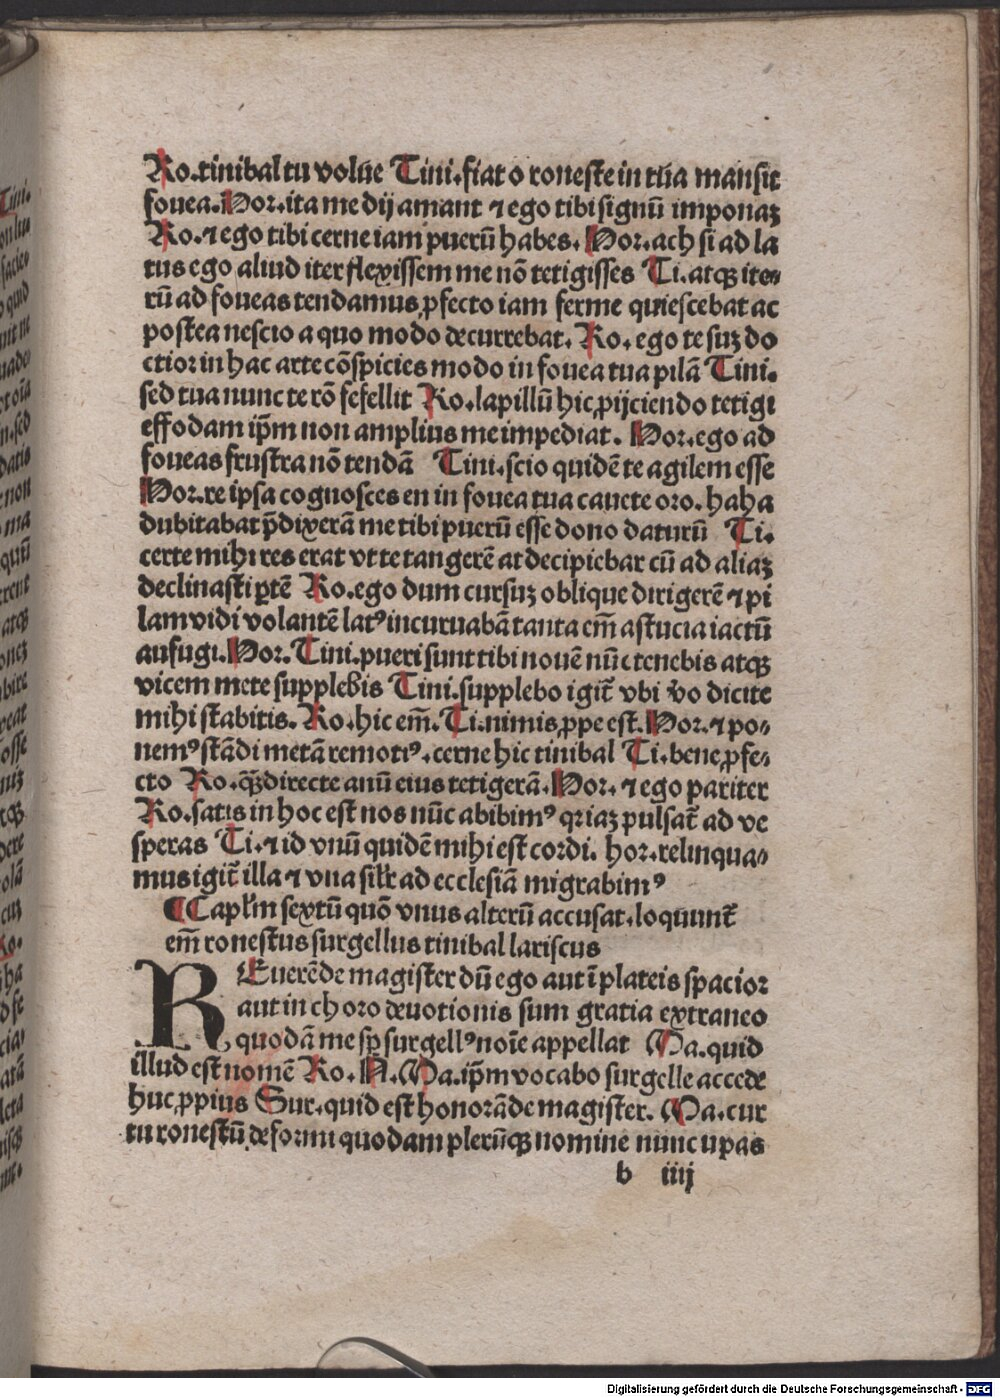 Ro.tinibal tu volue Tini.fiat o roneste in tua mansit
fouea.Hor.ita me dij amant ⁊ ego tibi signū imponaꝫ
Ro.⁊ ego tibi cerne iam puerū habes. Hor.ach si ad la
tus ego aliud iter flexissem me nō tetigisses Ti.atqꝫ ite⸗
rū ad foueas tendamus ꝓfecto iam ferme quiescebat ac
postea nescio a quo modo decurrebat. Ro. ego te suꝫ do
ctior in hac arte cōspicies modo in fouea tua pilā Tini.
sed tua nunc te rō fefellit Ro.lapillū hic ꝓijciendo tetigi
effodam ip̄m non amplius me impediat. Hor.ego ad
foueas frustra nō tendā Tini.scio quidē te agilem esse
Hor.re ipsa cognosces en in fouea tua cauete oro. haha
dubitabat p̄dixerā me tibi puerū esse dono daturū Ti.
certe mihi res erat vt te tangerē at decipiebar cū ad aliaꝫ
declinasti ꝑtē Ro.ego dum cursuꝫ oblique dirigerē ⁊ pi
lam vidi volantē latꝰ incuruabā tanta em̄ astucia iactū
aufugi.Hor.Tini.pueri sunt tibi nouē nūc tenebis atqꝫ
vicem mete supplebis Tini.supplebo igit᷑ vbi v̄o dicite
mihi stabitis. Ro.hic em̄. Ti.nimis ꝓpe est.Hor.⁊ po⸗
nemꝰ stādi metā remotiꝰ.cerne hic tinibal Ti.bene ꝓfe⸗
cto Ro.qꝫ̄ directe anū eius tetigerā.Hor. ⁊ ego pariter
Ro.satis in hoc est nos nūc abibimꝰ qꝛ iaꝫ pulsat᷑ ad ve
speras Ti.⁊ id vnū quidē mihi est cordi. hor.relinqua⸗
mus igit᷑ illa ⁊ vna sil̄r ad ecclesiā migrabimꝰ
¶Capl̄m sextū quō vnus alterū accusat.loquunt᷑
em̄ ronestus surgellus tinibal lariscus
REuerēde magister dū ego aut ī plateis spacior
aut in choro deuotionis sum gratia extraneo
quodā me sꝑ surgellꝰ noīe appellat Ma.quid
illud est nomē Ro.N.Ma.ip̄m vocabo surgelle accede
huc ꝓpius Sur.quid est honorāde magister. Ma.cur
tu ronestū deformi quodam plerūqꝫ nomine nuncupas
b iiij
Digitalisierung gefördert durch die Deutsche Forschungsgemeinschaft - DFG